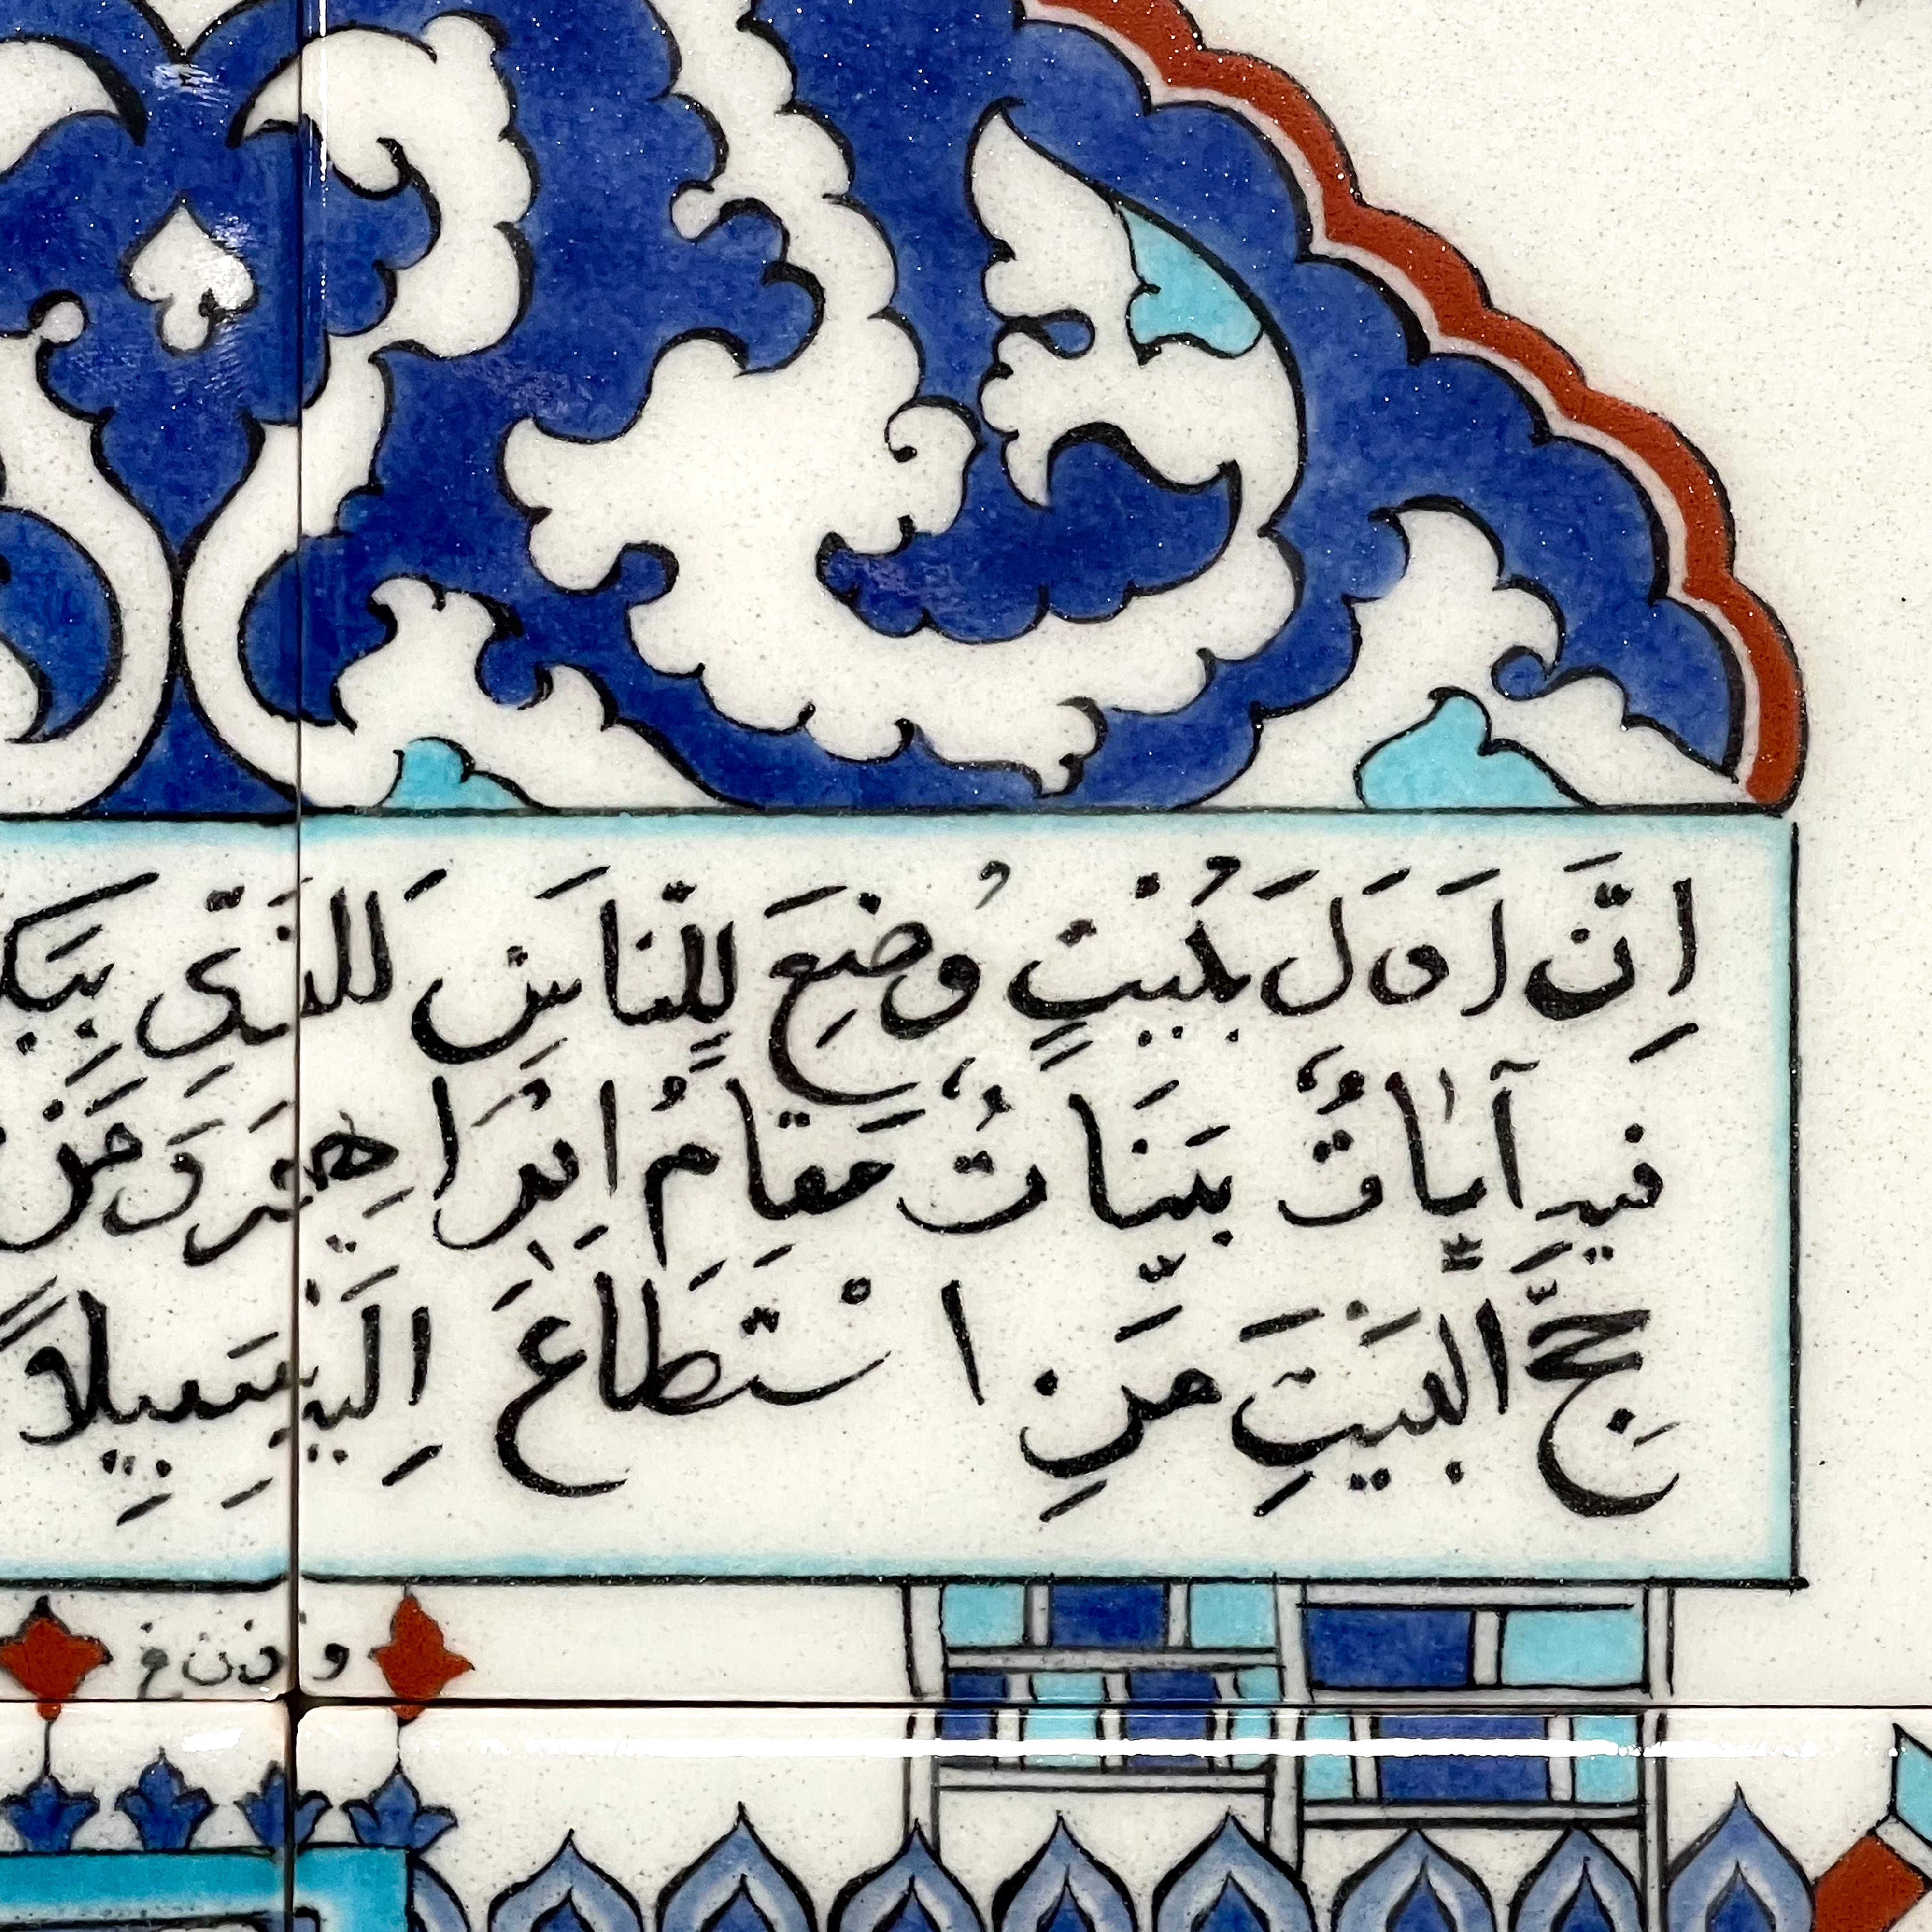 اِنَّ اَوَلَ بَيْتٍ وُضِعَ لِلنَّاسَ لَلَّذَى بِبَك
فيهِ آيَاتٌ بَيَنَاتٌ مَقَامُ اِبْرَاهِيمَ وَمَنْ
حِجُّ الْبَيْتِ مَنِ اسْتَطَاعَ اِلَيْهِ سَبِيلاً